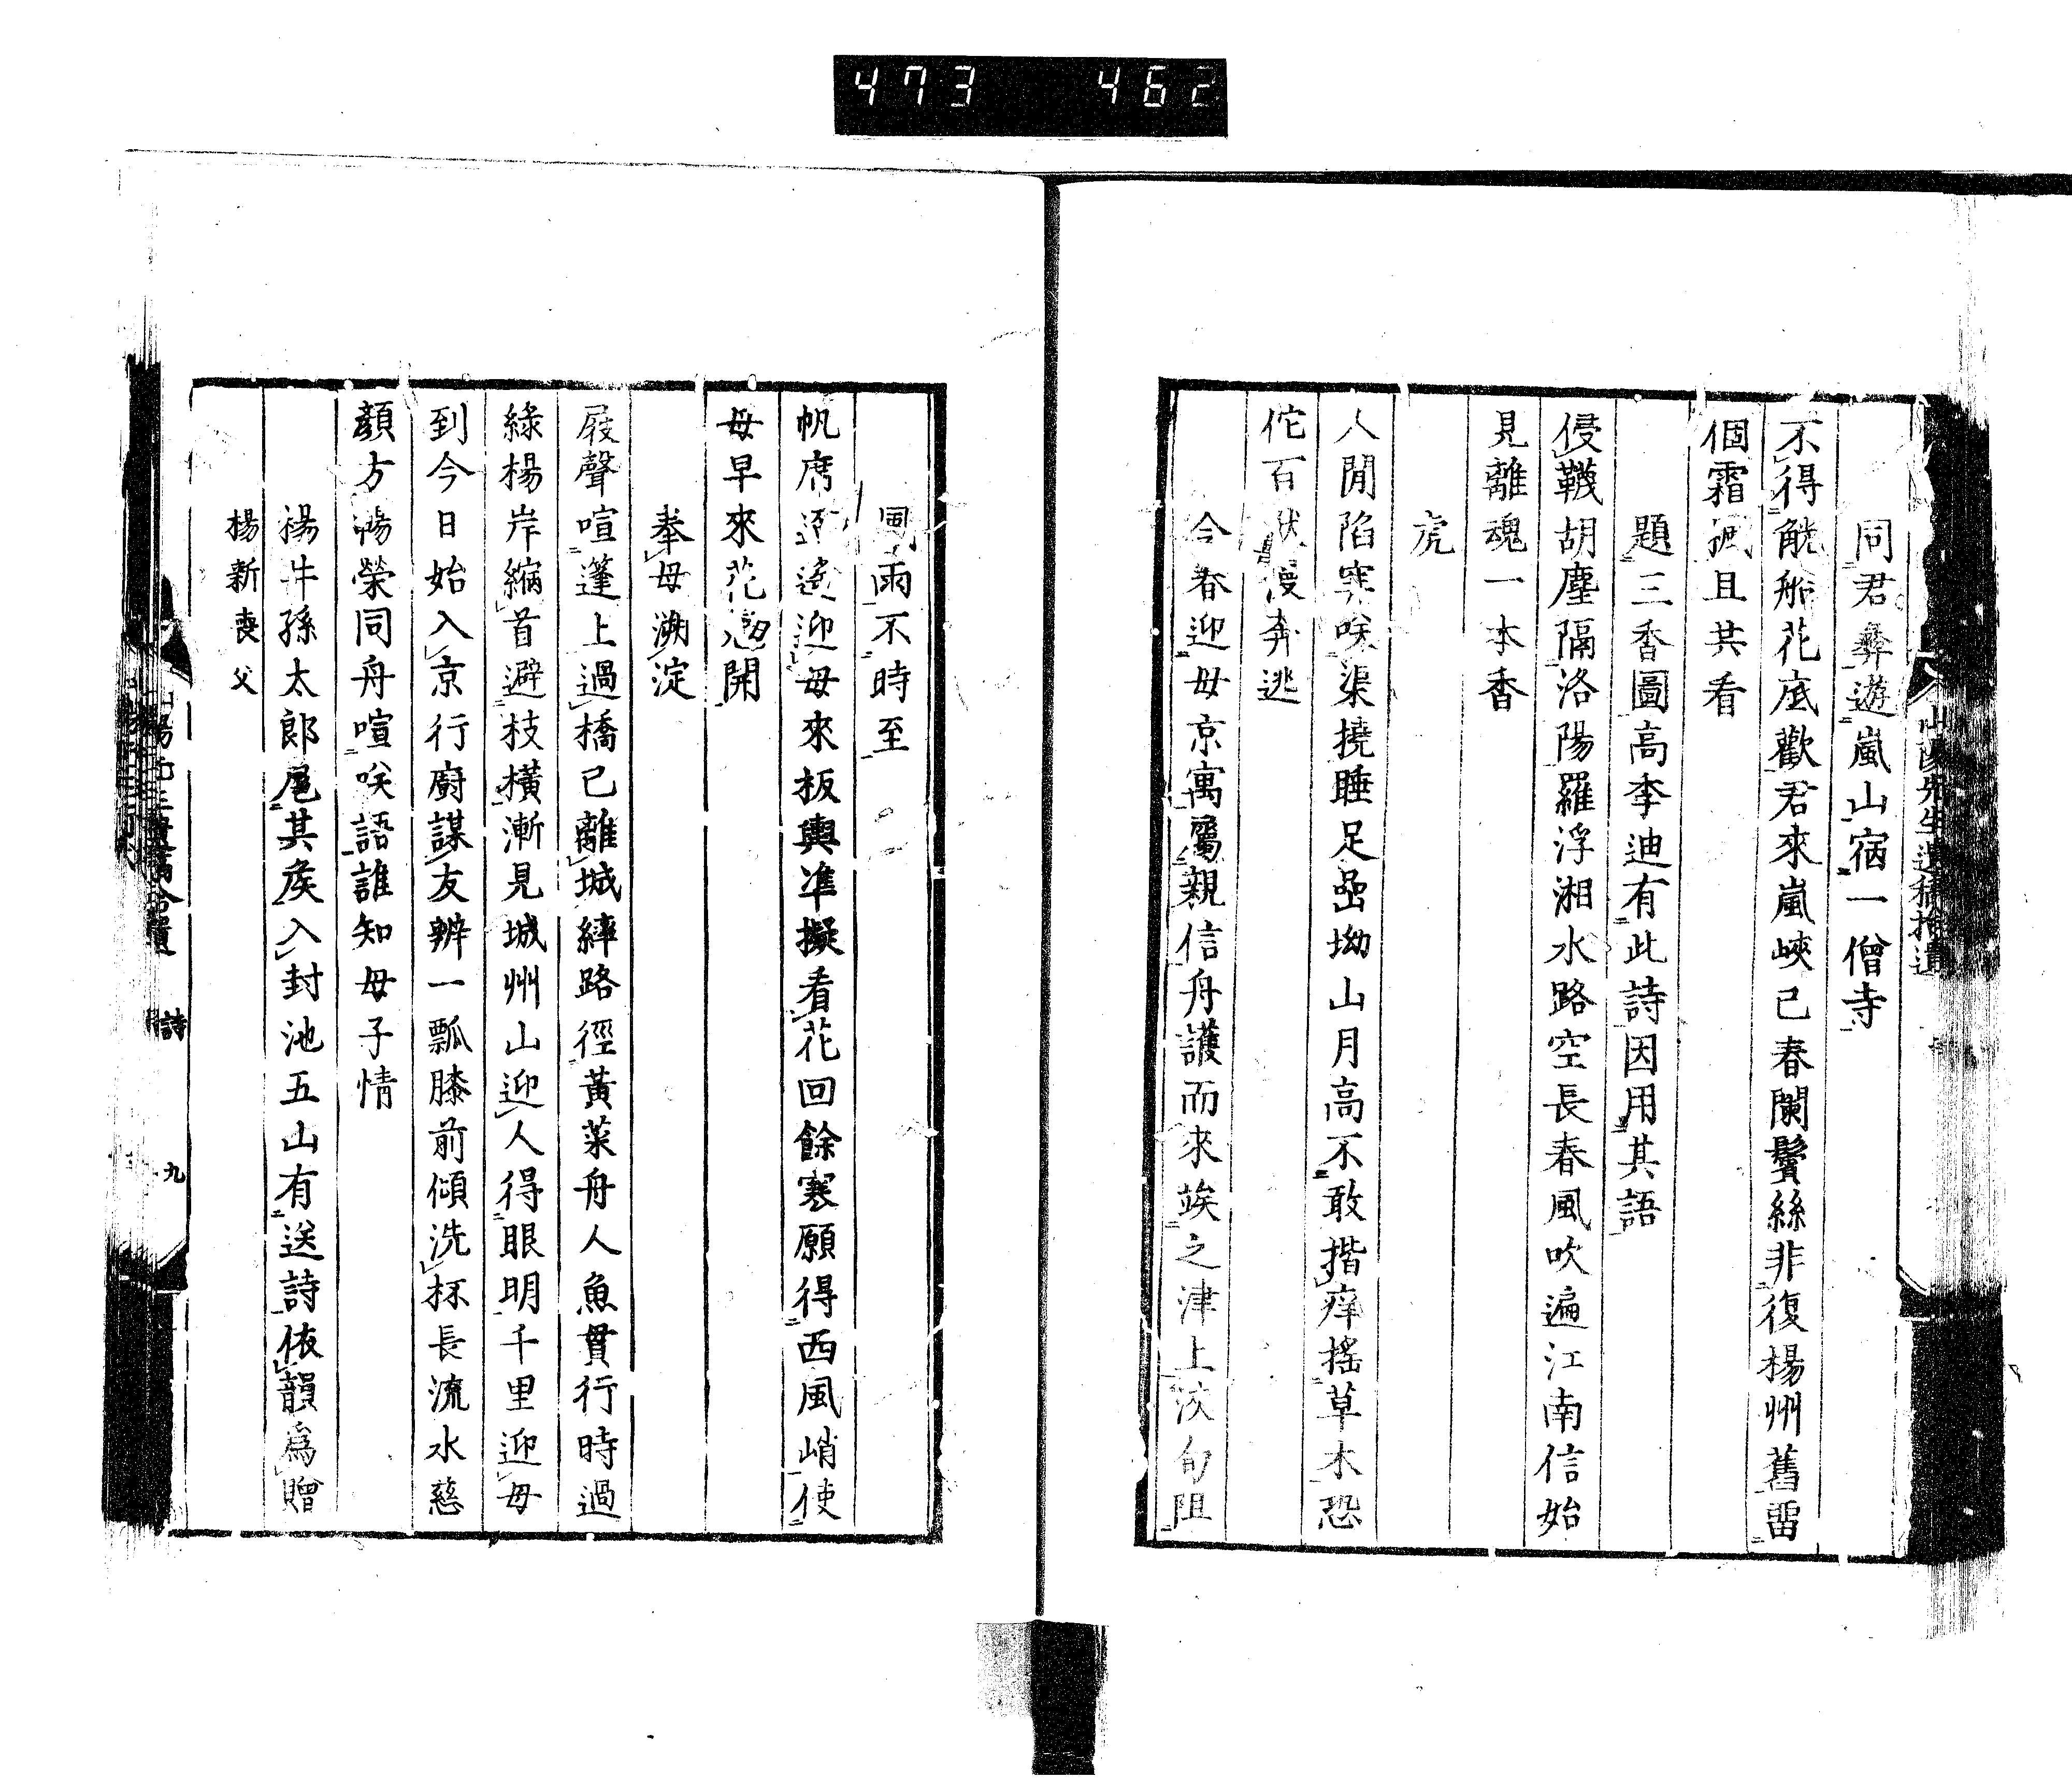 473 462
山陽先生遺稿拾遺
同君彝遊嵐山宿一僧寺
不得觥船花底歡君來嵐峽已春闌鬢絲非復楊州舊留
個霜楓且共看
題三香圖高李迪有此詩因用其語
侵韈胡塵隔洛陽羅浮湘水路空長春風吹遍江南信始
見離魂一本香
虎
人間陷穽咲渠撓睡足嵒坳山月高不敢揩痒搖草木恐
佗百獸漫奔逃
今春迎母京寓屬親信舟護而來竢之津上浹旬阻
風雨不時至
帆席迢遙迎母來板輿準擬看花回餘寒願得西風峭使
母早來花開
奉母溯淀
屐聲喧篷上過橋已離城縴路徑黃菜舟人魚貫行時過
綠楊岸縮首避枝橫漸見城州山迎人得眼明千里迎母
到今日始入京行廚謀友辨一瓢膝前傾洗杯長流水慈
顏方暢榮同舟喧咲語誰知母子情
楊井孫太郎尾其侯入封池五山有送詩依韻爲贈
楊新喪父
詩 九